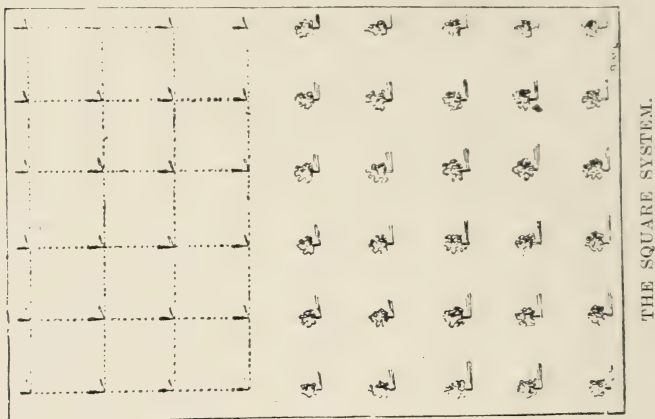 THE SQUARE SYSTEM.